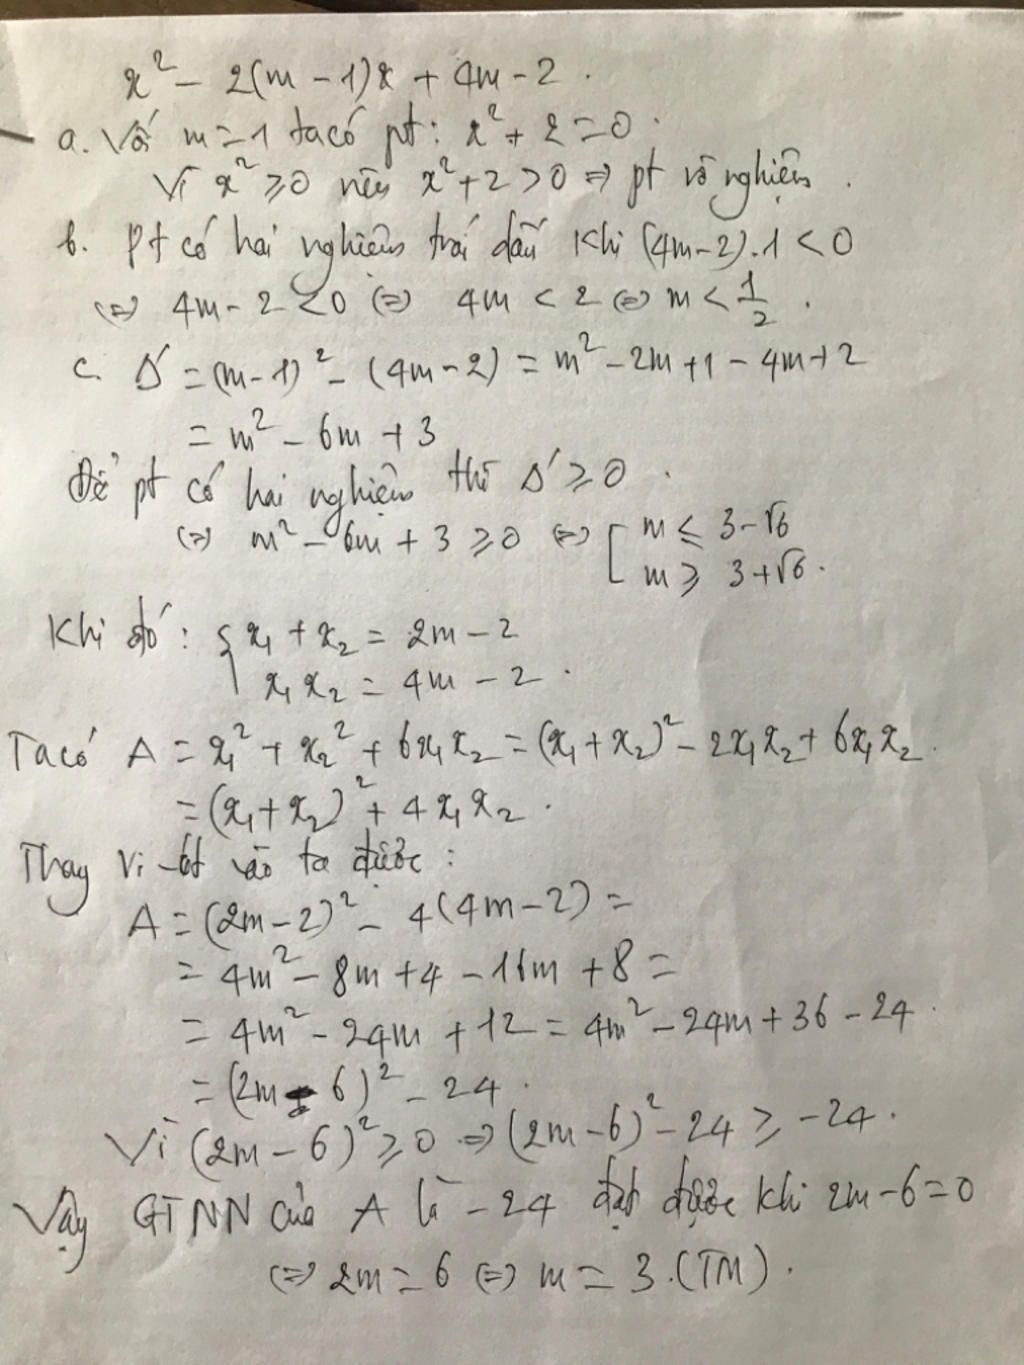 x² - 2(m - 1)x + 4m - 2.
a. Với m = 1 ta có pt: x² + 2 = 0.
Vì x² ≥ 0 nên x² + 2 > 0 => pt vô nghiệm.
b. Pt có hai nghiệm trái dấu khi (4m-2).1 < 0
<=> 4m - 2 < 0 <=> 4m < 2 <=> m < 1/2.
c. Δ' = (m-1)² - (4m - 2) = m² - 2m + 1 - 4m + 2
= m² - 6m + 3
Để pt có hai nghiệm thì Δ' ≥ 0.
<=> m² - 6m + 3 ≥ 0 <=> [ m ≤ 3 - √6
m ≥ 3 + √6.
Khi đó: { x₁ + x₂ = 2m - 2
x₁ x₂ = 4m - 2.
Ta có A = x₁² + x₂² + 6x₁x₂ = (x₁ + x₂)² - 2x₁x₂ + 6x₁x₂.
= (x₁ + x₂)² + 4x₁x₂.
Thay Vi-ét vào ta được:
A = (2m - 2)² - 4(4m - 2) =
= 4m² - 8m + 4 - 16m + 8 =
= 4m² - 24m + 12 = 4m² - 24m + 36 - 24.
= (2m - 6)² - 24.
Vì (2m - 6)² ≥ 0 => (2m - 6)² - 24 ≥ -24.
Vậy GTNN của A là -24 đạt được khi 2m - 6 = 0
<=> 2m = 6 <=> m = 3.(TM).